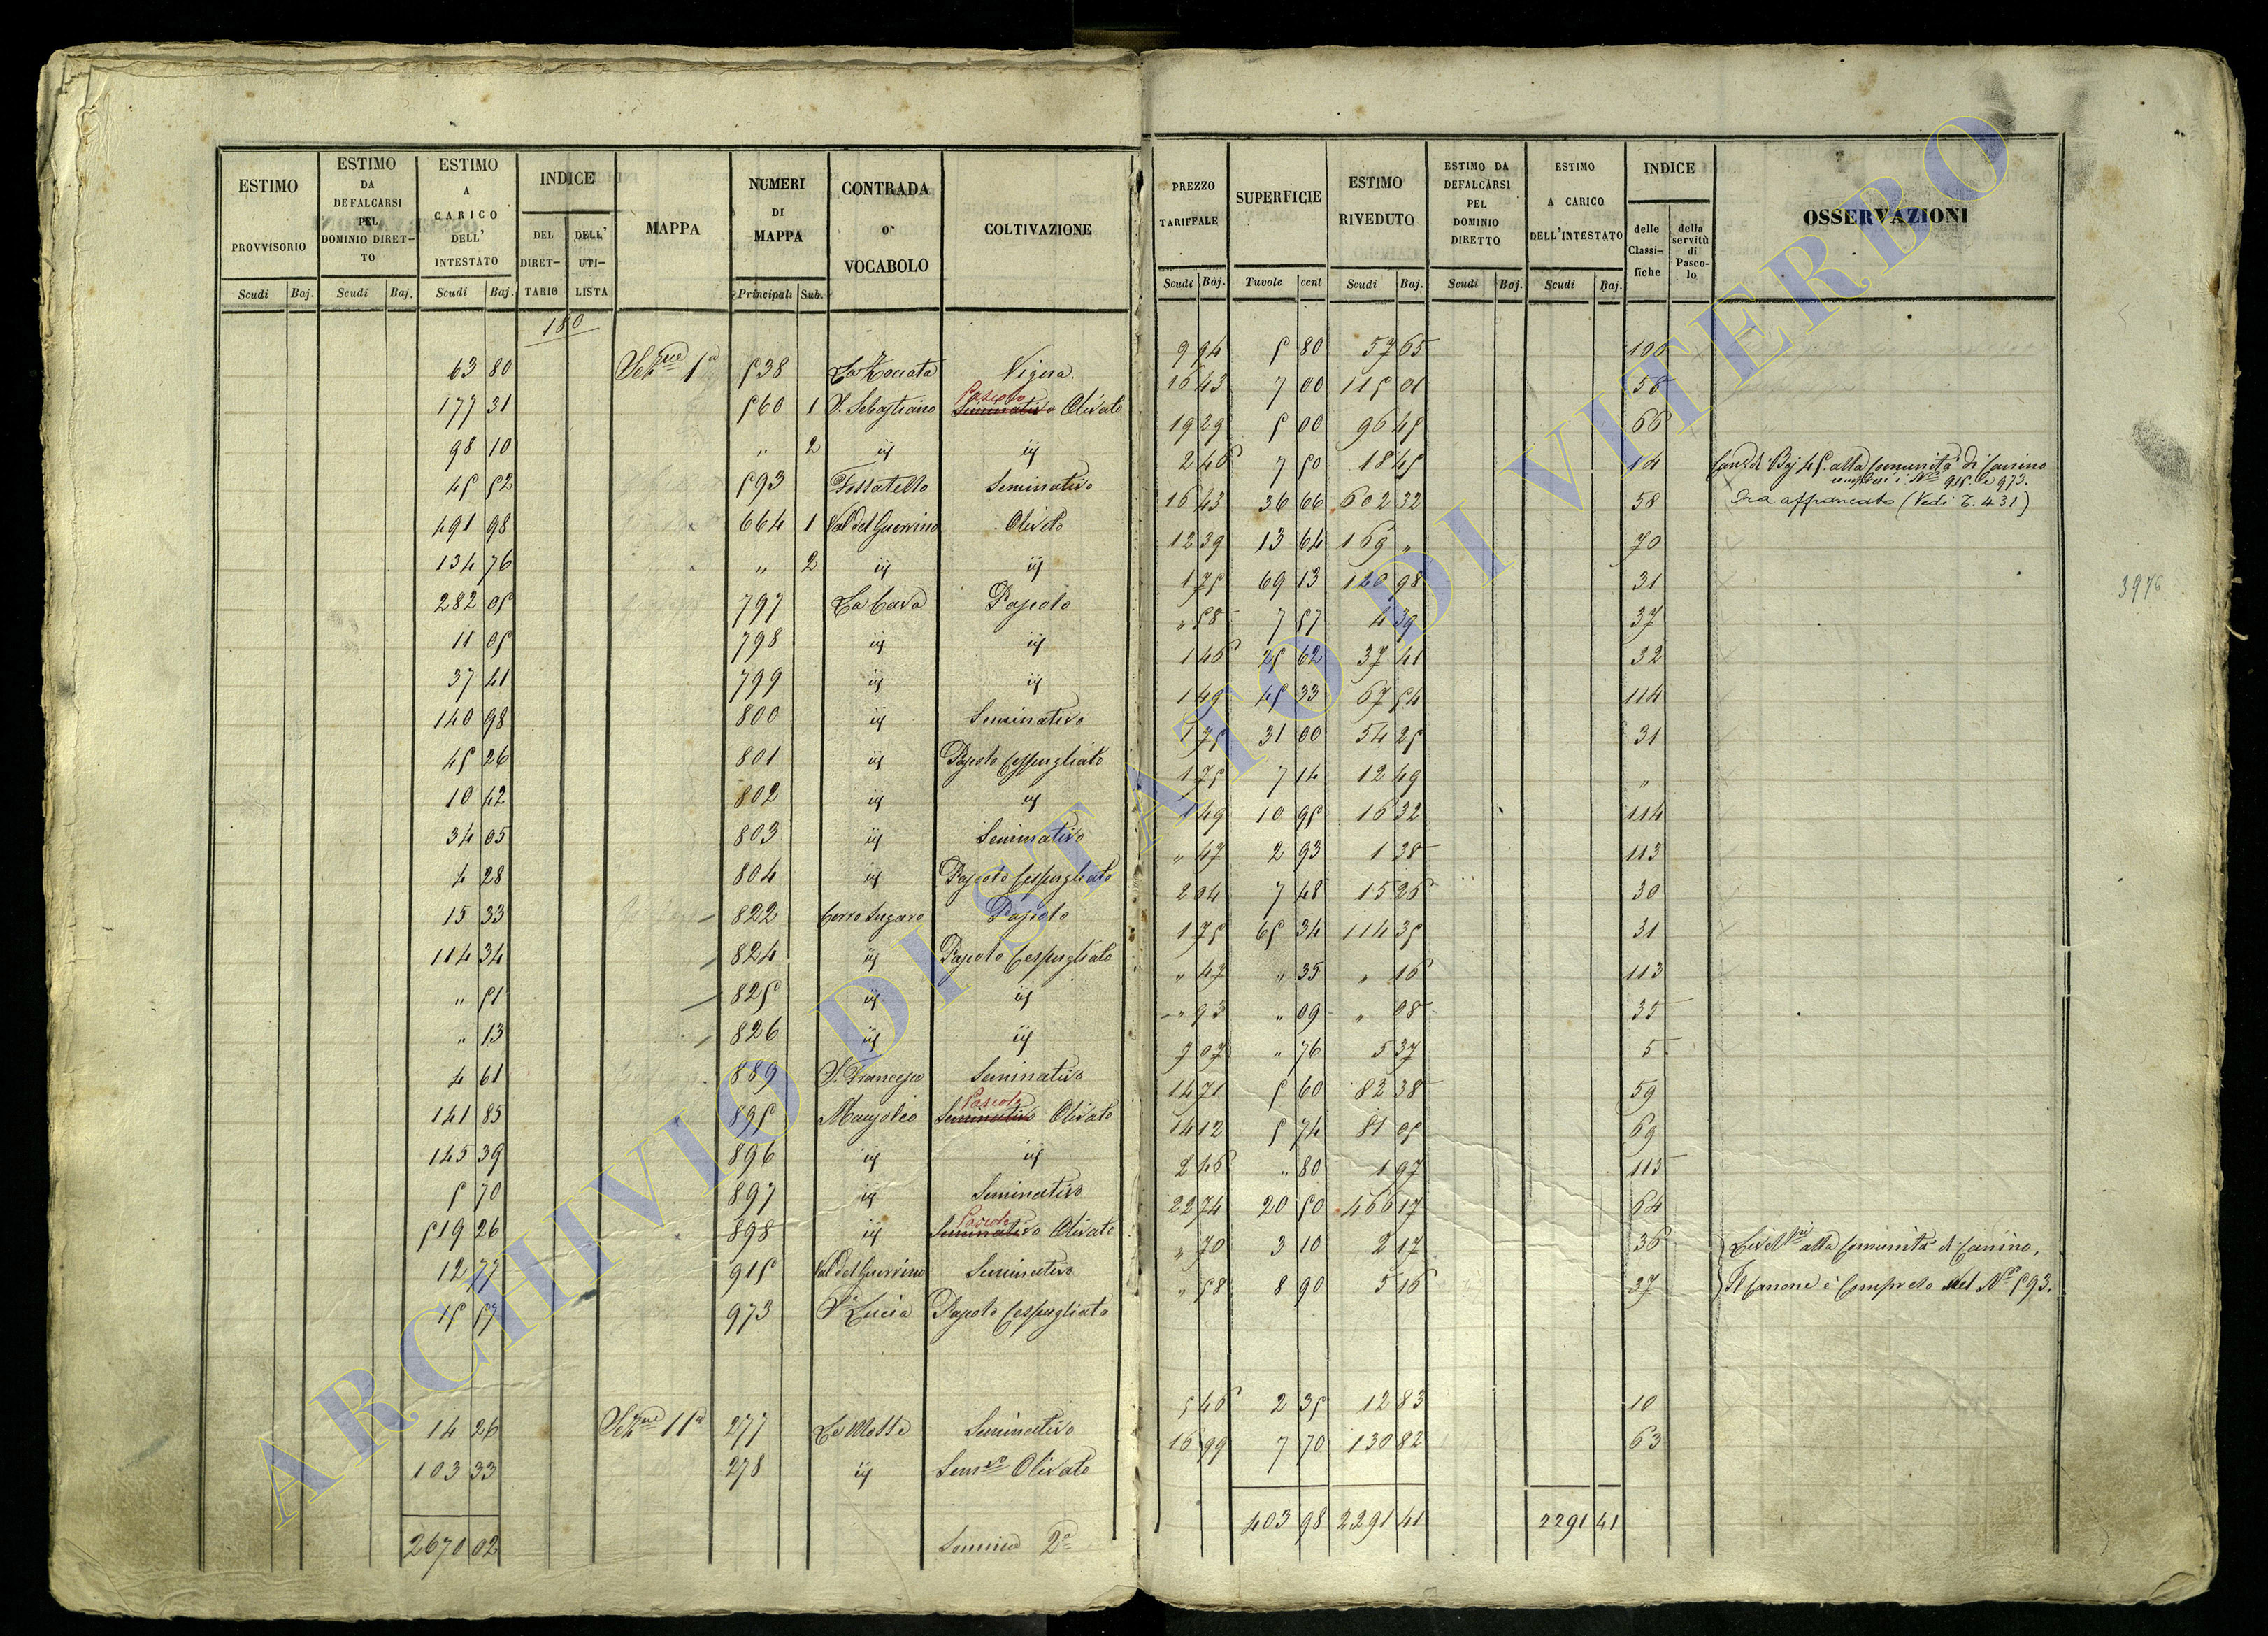 ESTIMO PROVVISORIO Scudi Baj.
ESTIMO DA DEFALCARSI PEL DOMINIO DIRET-TO Scudi Baj.
ESTIMO A CARICO DELL' INTESTATO Scudi Baj.
INDICE DEL DIRET-TARIO DELL' UTI-LISTA
MAPPA
NUMERI DI MAPPA Principali Sub.
CONTRADA O VOCABOLO
COLTIVAZIONE
180
63 80 Sez.ne 1a 538 Vigna
177 31 560 1 S. Sebastiano Seminativo Pascolo Olivato
98 10 " 2 ij ij
45 52 593 Fossatello Seminativo
491 98 664 1 Val del Guerrino Oliveto
134 76 " 2 ij ij
282 05 797 La Cava Pascolo
11 05 798 ij ij
37 41 799 ij ij
140 98 800 ij Seminativo
45 26 801 ij Pascolo Cespugliato
10 42 802 ij ij
34 05 803 ij Seminativo
4 28 804 ij Pascolo Cespugliato
15 33 822 Cerro Sugaro Pascolo
114 34 824 ij Pascolo Cespugliato
" 51 825 ij ij
" 13 826 ij ij
4 61 889 S. Francesco Seminativo
141 85 895 Seminativo Pascolo Olivato
145 39 896 ij ij
5 70 897 ij Seminativo
519 26 898 ij Seminativo Pascolo Olivato
12 77 915 Val del Guerrino Seminativo
15 57 973 Sa Lucia Pascolo Cespugliato
14 26 Sez.ne 11a 277 Seminativo
103 33 278 ij Sem.vo Olivato
2670 02
PREZZO TARIFFALE Scudi Baj.
SUPERFICIE Tavole cent
ESTIMO RIVEDUTO Scudi Baj.
ESTIMO DA DEFALCARSI PEL DOMINIO DIRETTO Scudi Baj.
ESTIMO A CARICO DELL'INTESTATO Scudi Baj.
INDICE delle Classi-fiche della servitù di Pasco-lo
OSSERVAZIONI
9 94 5 80 57 65 100
16 43 7 00 115 01 58
19 29 5 00 96 45 66
2 46 7 50 18 45 14 Can.e di Baj 45 alla Comunità di Canino
compresi i N.ri 915. e 973.
16 43 36 66 602 32 58 Ora affrancato (Vedi T. 431)
12 39 13 64 169 " 70
1 75 69 13 120 98 31
" 58 7 57 4 39 37
1 46 25 62 37 41 32
1 49 45 33 67 54 114
1 75 31 00 54 25 31
1 75 7 14 12 49 "
1 49 10 95 16 32 114
" 47 2 93 1 38 113
2 04 7 48 15 26 30
1 75 65 34 114 35 31
" 47 " 35 " 16 113
" 93 " 09 " 08 35
7 07 " 76 5 37 5
14 71 5 60 82 38 59
14 12 5 74 81 05 69
2 46 " 80 1 97 115
22 74 20 50 466 17 64
" 70 3 10 2 17 36 Livell.ri alla Comunità di Canino,
" 58 8 90 5 16 37 Il Canone è Compreso nel N.o 593.
5 46 2 35 12 83 10
16 99 7 70 130 82 63
403 98 2291 41 2291 41
3976
ARCHIVIO DI STATO DI VITERBO